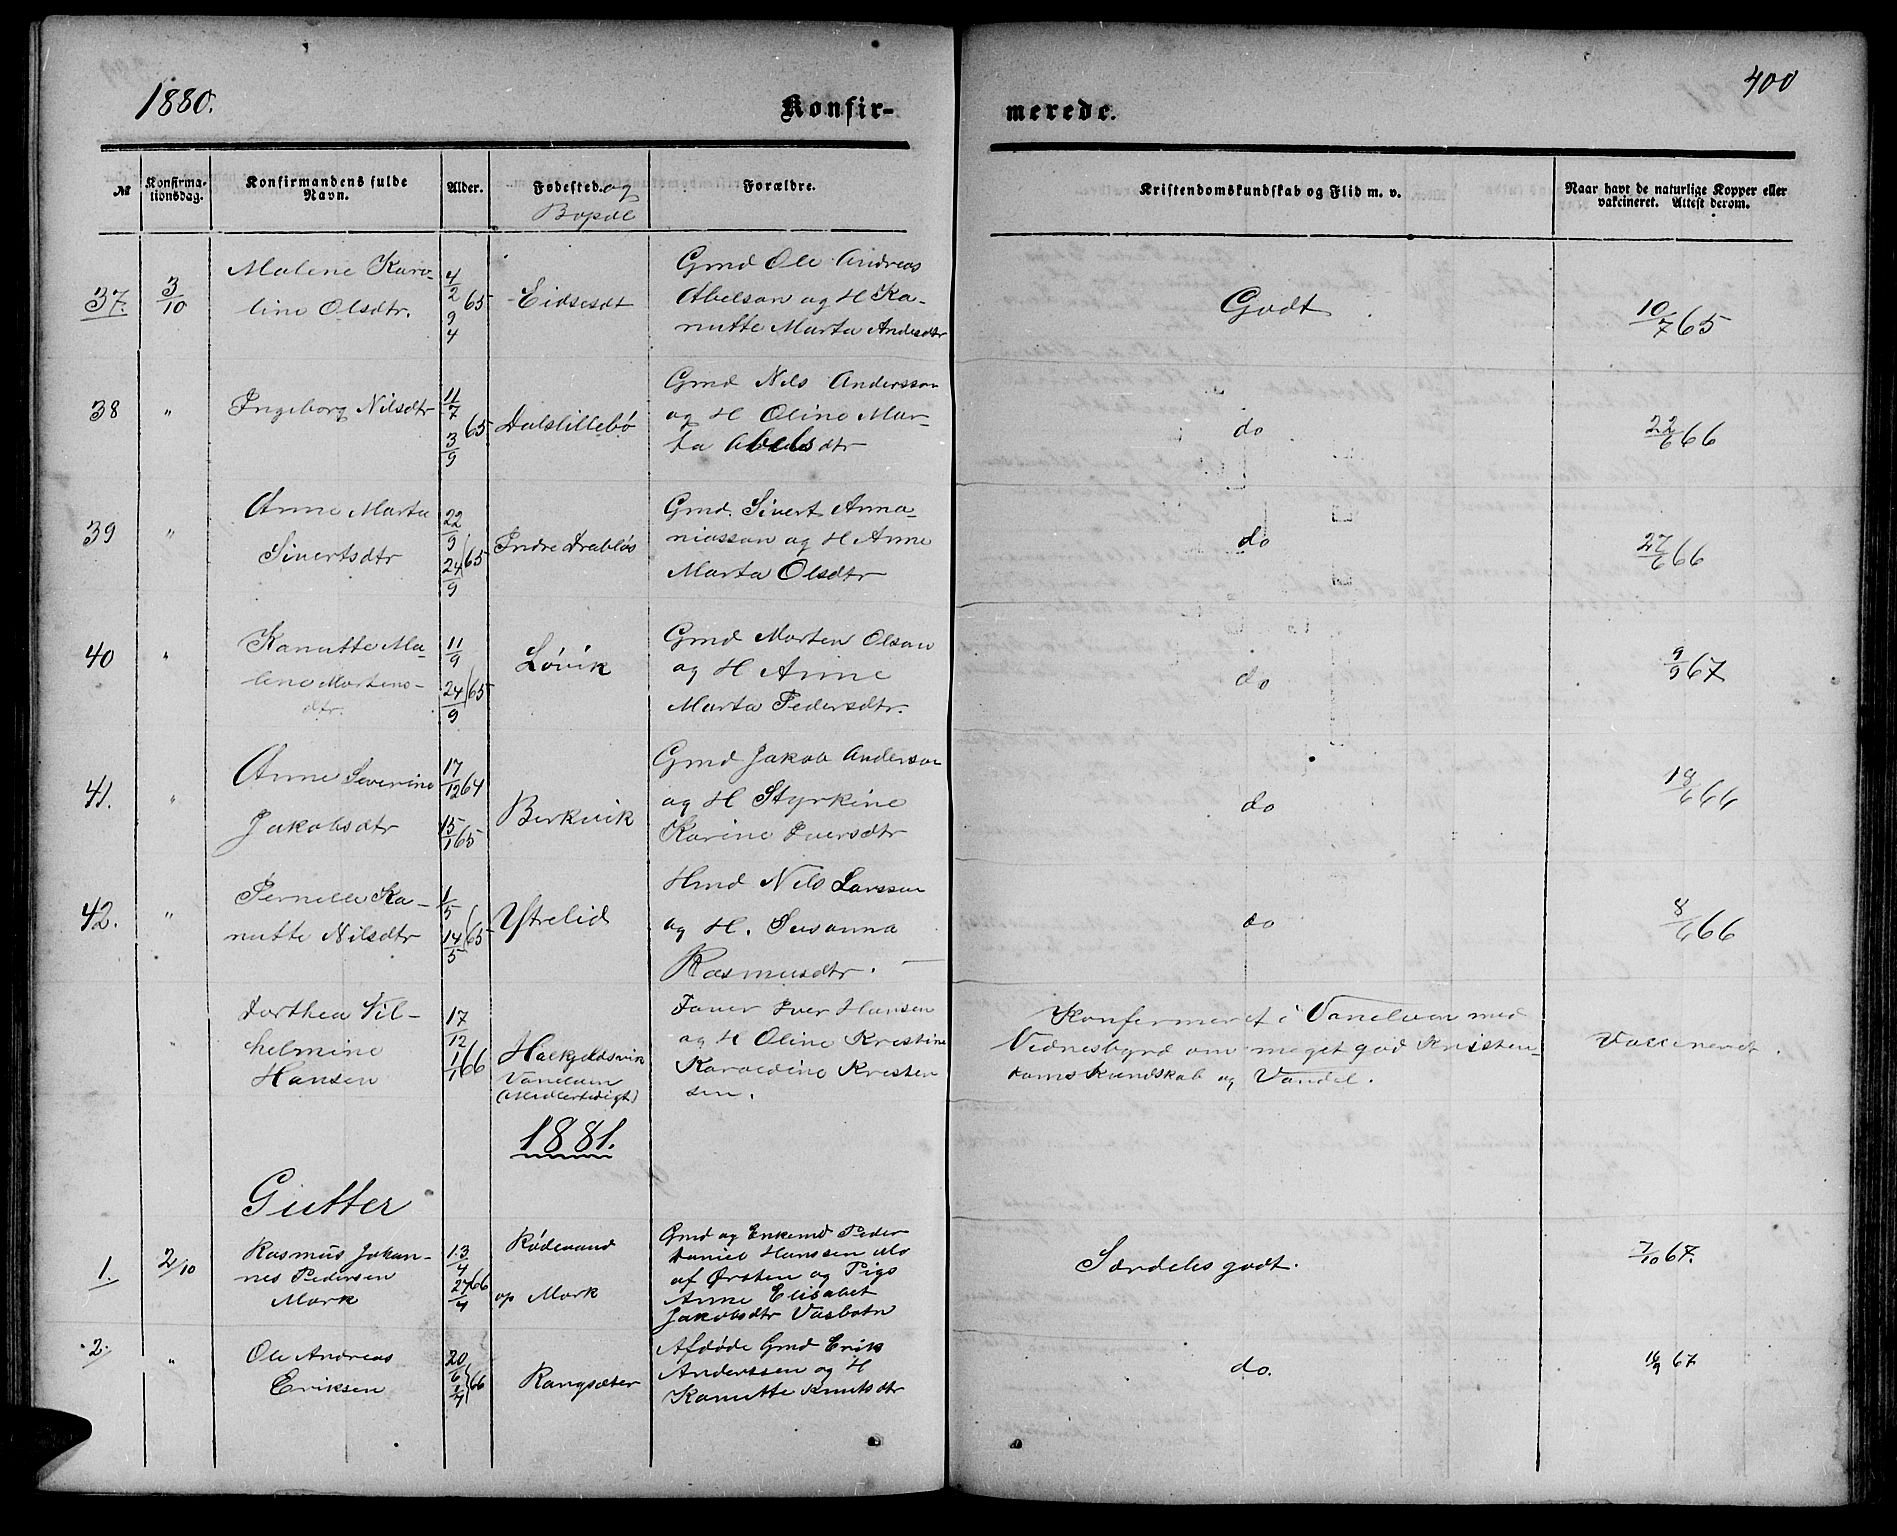 1880.
Konfir-
merede.
400
№
Konfirma-
tionsdag.
Konfirmandens fulde
Navn.
Alder.
Fødested. og
Bopæl
Forældre.
Kristendomskundskab og Flid m. v.
Naar havt de naturlige Kopper eller
vakcineret. Attest derom.
37. 3/10 Malene Karo-
line Olsdtr.
4/2 65 9/4
Eidsesdt
Gmd Ole Andreas
Abelson og H Ka-
nutte Marta Andesdtr
Godt
10/7 65
38 " Ingeborg Nilsdtr
11/7 65 3/9
Dalslillebø
Gmd Nils Andersson
og H Oline Mar-
ta Abelsdtr
do
22/6 66
39 " Anne Marta
Sivertsdtr
22/9 24/9 65
Indre Drabløs
Gmd. Sivert Anna-
niasson og H Anne
Marta Olsdtr
do
27/6 66
40 " Kanutte Ma-
lene Martens-
dtr.
11/9 24/9 65
Løvik
Gmd Morten Olson
og H Anne
Marta Pedersdtr.
do
9/9 67
41. " Anne Severine
Jakobsdtr
17/12 64
15/1 65
Berkvik
Gmd Jakob Anderson
og H Styrkine
Karine Iversdtr
do
18/6 66
42. " Pernille Ka-
nutte Nilsdtr
1/5 14/5 65
Ytrelid
Hmd Nils Larssen
og H. Susanna
Rasmusdtr.
do
8/6 66
" Dorthea Vil-
helmine
Hansen
17/12 1/1 66
Vanelven
(Midlertidigt)
Iver Hansen
og H Oline Kristine
Karoldine Kristen
sen.
Konfermeret i Vanelven med
Vidnesbyrd om meget god Kristen-
doms Kundskab og Vandel.
Vaccineret.
1881.
Gutter
1. 2/10 Rasmus Johan-
nes Pedersen
Mork
13/4 27/4 66
Rødevand
op Mork
Gmd og Enkemd Peder
Daniel Hanssen Mo
af Ørsten og Pige
Anne Elisabet
Jakobsdtr Vasbotn
Særdeles godt.
7/10 67.
2. " Ole Andreas
Eriksen
20/6 1/7 66
Rangsæter
Afdøde Gmd Erik
Anderssen og H
Kanutte Knutsdtr
do.
16/9 67